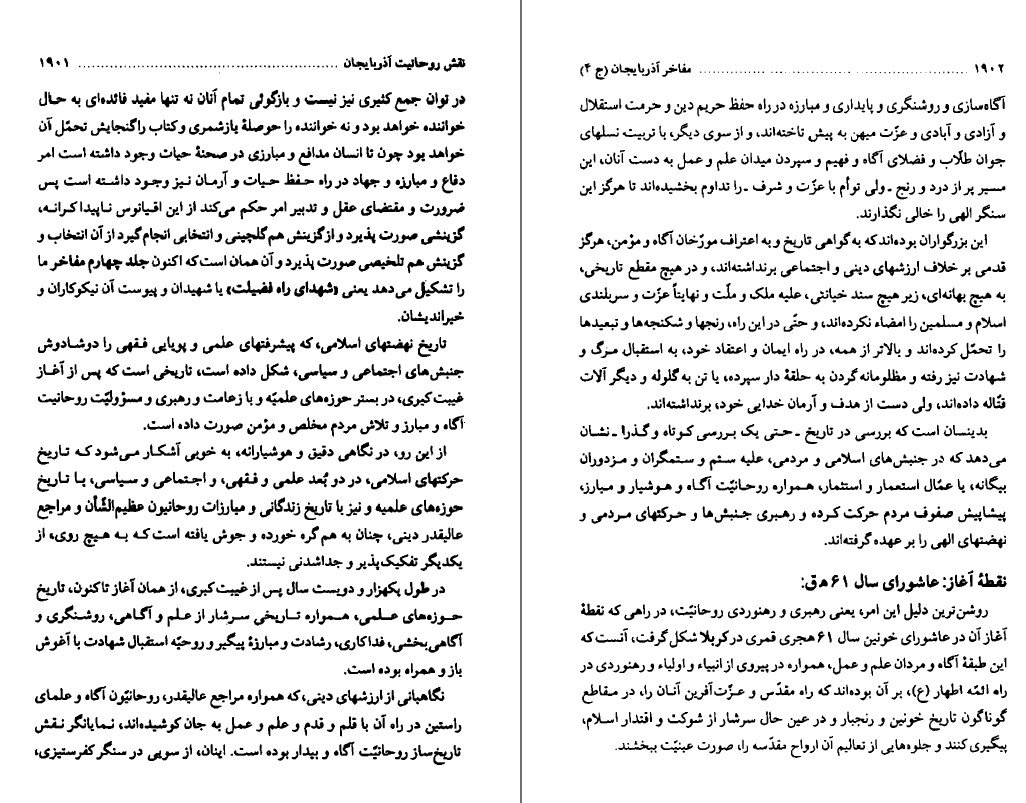 نقش روحانیت آذربایجان ........................................................ ۱۹۰۱
در توان جمع کثیری نیز نیست و بازگوئی تمام آنان نه تنها مفید فائده‌ای به حال
خواننده خواهد بود و نه خواننده را حوصلهٔ بازشمری و کتاب را گنجایش تحمّل آن
خواهد بود چون تا انسان مدافع و مبارزی در صحنهٔ حیات وجود داشته است امر
دفاع و مبارزه و جهاد در راه حفظ حیات و آرمان نیز وجود داشته است پس
ضرورت و مقتضای عقل و تدبیر امر حکم می‌کند از این اقیانوس ناپیدا کرانه،
گزینشی صورت پذیرد و از گزینش هم گلچینی و انتخابی انجام گیرد از آن انتخاب و
گزینش هم تلخیصی صورت پذیرد و آن همان است که اکنون جلد چهارم مفاخر ما
را تشکیل می‌دهد یعنی «شهدای راه فضیلت» یا شهیدان و پیوست آن نیکوکاران و
خیراندیشان.
تاریخ نهضتهای اسلامی، که پیشرفتهای علمی و پویایی فقهی را دوشادوش
جنبش‌های اجتماعی و سیاسی، شکل داده است، تاریخی است که پس از آغاز
غیبت کبری، در بستر حوزه‌های علمیّه و با زعامت و رهبری و مسؤولیّت روحانیت
آگاه و مبارز و تلاش مردم مخلص و مؤمن صورت داده است.
از این رو، در نگاهی دقیق و هوشیارانه، به خوبی آشکار می‌شود که تاریخ
حرکتهای اسلامی، در دو بُعد علمی و فقهی، و اجتماعی و سیاسی، با تاریخ
حوزه‌های علمیه و نیز با تاریخ زندگانی و مبارزات روحانیون عظیم‌الشّأن و مراجع
عالیقدر دینی، چنان به هم گره خورده و جوش یافته است که به هیچ روی، از
یکدیگر تفکیک‌پذیر و جداشدنی نیستند.
در طول یکهزار و دویست سال پس از غیبت کبری، از همان آغاز تاکنون، تاریخ
حوزه‌های علمی، همواره تاریخی سرشار از علم و آگاهی، روشنگری و
آگاهی‌بخشی، فداکاری، رشادت و مبارزهٔ پیگیر و روحیّه استقبال شهادت با آغوش
باز و همراه بوده است.
نگاهبانی از ارزشهای دینی، که همواره مراجع عالیقدر، روحانیّون آگاه و علمای
راستین در راه آن با قلم و قدم و علم و عمل به جان کوشیده‌اند، نمایانگر نقش
تاریخ‌ساز روحانیّت آگاه و بیدار بوده است. اینان، از سویی در سنگر کفرستیزی،
۱۹۰۲ ........................................................ مفاخر آذربایجان (ج ۴)
آگاه‌سازی و روشنگری و پایداری و مبارزه در راه حفظ حریم دین و حرمت استقلال
و آزادی و آبادی و عزّت میهن به پیش تاخته‌اند، و از سوی دیگر، با تربیت نسلهای
جوان طلّاب و فضلای آگاه و فهیم و سپردن میدان علم و عمل به دست آنان، این
مسیر پر از درد و رنج ـ ولی توأم با عزّت و شرف ـ را تداوم بخشیده‌اند تا هرگز این
سنگر الهی را خالی نگذارند.
این بزرگواران بوده‌اند که به گواهی تاریخ و به اعتراف مورّخان آگاه و مؤمن، هرگز
قدمی بر خلاف ارزشهای دینی و اجتماعی برنداشته‌اند، و در هیچ مقطع تاریخی،
به هیچ بهانه‌ای، زیر هیچ سند خیانتی، علیه ملک و ملّت و نهایتاً عزّت و سربلندی
اسلام و مسلمین را امضاء نکرده‌اند، و حتّی در این راه، رنجها و شکنجه‌ها و تبعیدها
را تحمّل کرده‌اند و بالاتر از همه، در راه ایمان و اعتقاد خود، به استقبال مرگ و
شهادت نیز رفته و مظلومانه گردن به حلقهٔ دار سپرده، یا تن به گلوله و دیگر آلات
قتّاله داده‌اند، ولی دست از هدف و آرمان خدایی خود، برنداشته‌اند.
بدینسان است که بررسی در تاریخ ـ حتی یک بررسی کوتاه و گذرا ـ نشان
می‌دهد که در جنبش‌های اسلامی و مردمی، علیه ستم و ستمگران و مزدوران
بیگانه، یا عمّال استعمار و استثمار، همواره روحانیّت آگاه و هوشیار و مبارز،
پیشاپیش صفوف مردم حرکت کرده و رهبری جنبش‌ها و حرکتهای مردمی و
نهضتهای الهی را بر عهده گرفته‌اند.
نقطهٔ آغاز: عاشورای سال ۶۱ ه‍.ق:
روشن‌ترین دلیل این امر، یعنی رهبری و رهنوردی روحانیّت، در راهی که نقطهٔ
آغاز آن در عاشورای خونین سال ۶۱ هجری قمری در کربلا شکل گرفت، آنست که
این طبقهٔ آگاه و مردان علم و عمل، همواره در پیروی از انبیاء و اولیاء و رهنوردی در
راه ائمّه اطهار (ع)، بر آن بوده‌اند که راه مقدّس و عزّت‌آفرین آنان را، در مقاطع
گوناگون تاریخ خونین و رنجبار و در عین حال سرشار از شوکت و اقتدار اسلام،
پیگیری کنند و جلوه‌هایی از تعالیم آن ارواح مقدّسه را، صورت عینیّت ببخشند.